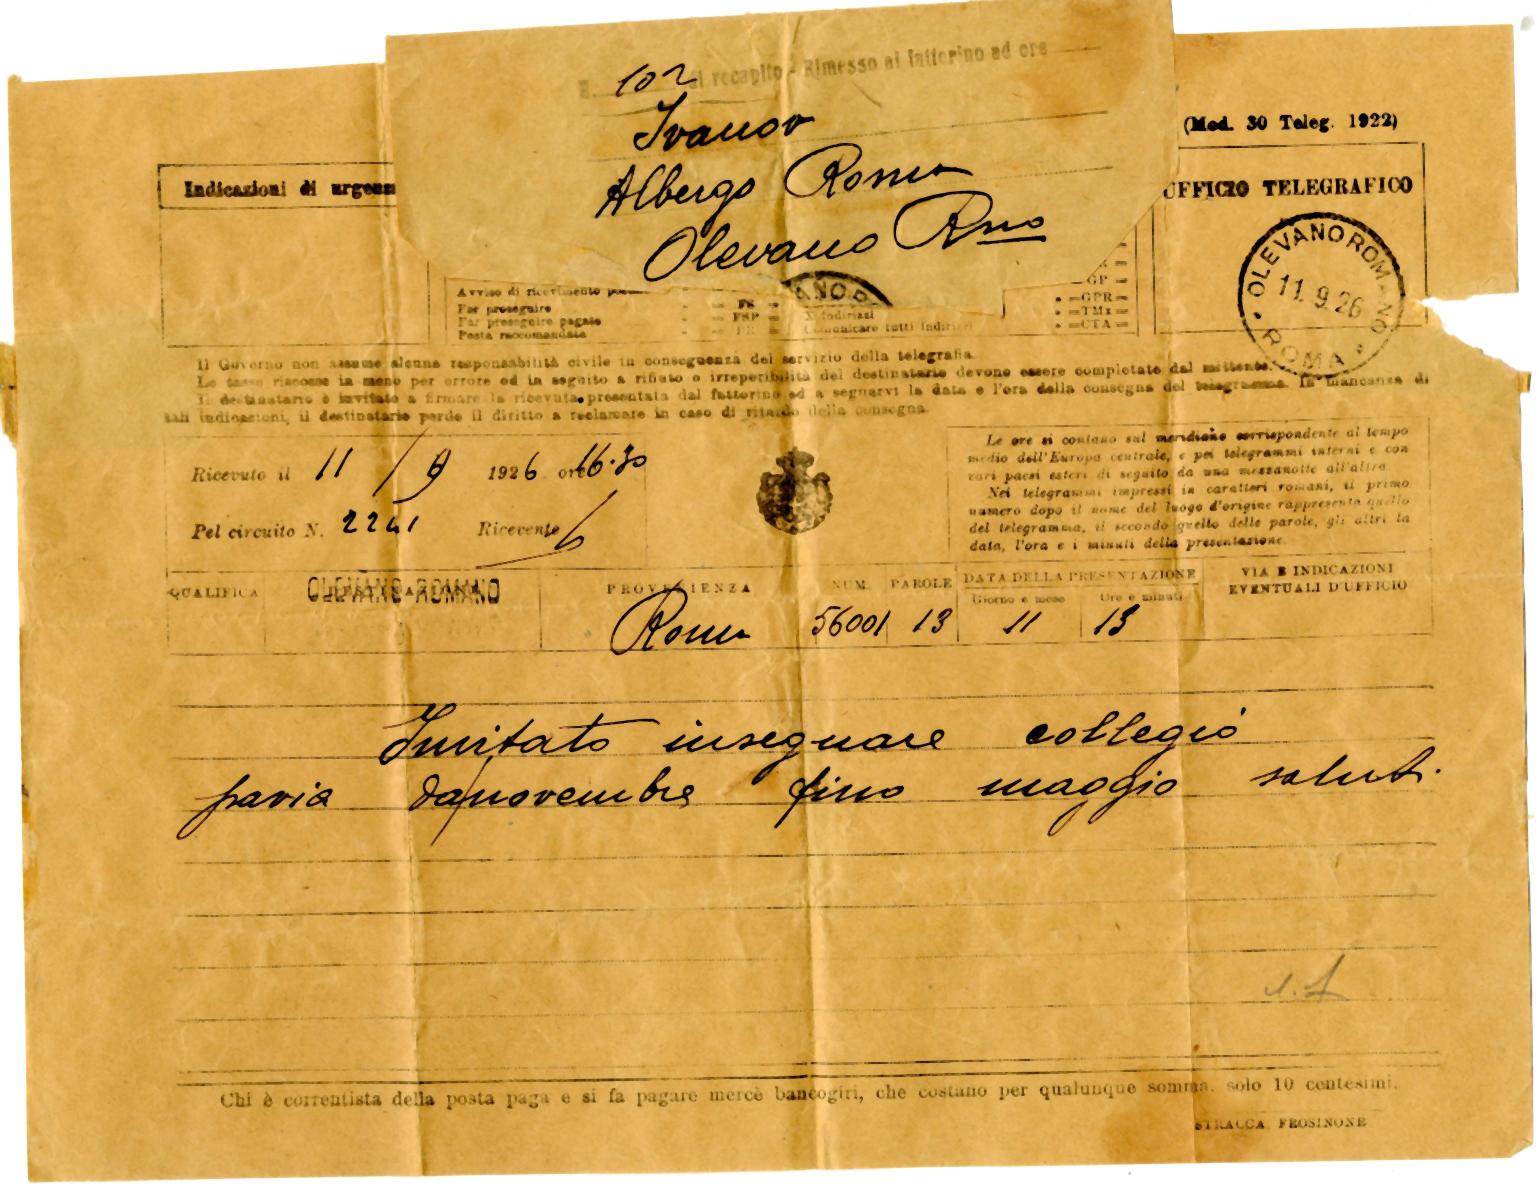 al recapito - Rimesso al fattorino ad ore
102
Ivanov
Albergo Roma
Olevano Rno
(Mod. 30 Teleg. 1922)
Indicazioni di urgenz
UFFICIO TELEGRAFICO
OLEVANO ROMANO
11.9.26
ROMA
Avviso di ricevimento
Far proseguire
Far proseguire pagato
Posta raccomandata
FS =
FSP =
FR =
X Indirizzi
Comunicare tutti indirizzi
GP =
=GPR=
=TMx=
=CTA=
ANO R
Il Governo non assume alcuna responsabilità civile in conseguenza del servizio della telegrafia.
Le tasse riscosse in meno per errore od in seguito a rifiuto o irreperibilità del destinatario devono essere completate dal mittente.
Il destinatario è invitato a firmare la ricevuta presentata dal fattorino ed a segnarvi la data e l'ora della consegna del telegramma. In mancanza di
tali indicazioni, il destinatario perde il diritto a reclamare in caso di ritardo della consegna.
Ricevuto il 11 / 9 1926 ore 16.30
Pel circuito N. 2241 Ricevente
Le ore si contano sul meridiano corrispondente al tempo
medio dell'Europa centrale, e pei telegrammi interni e con
vari paesi esteri di seguito da una mezzanotte all'altra.
Nei telegrammi impressi in caratteri romani, il primo
numero dopo il nome del luogo d'origine rappresenta quello
del telegramma, il secondo quello delle parole, gli altri la
data, l'ora e i minuti della presentazione.
QUALIFICA OLEVANO ROMANO PROVENIENZA NUM. PAROLE DATA DELLA PRESENTAZIONE VIA E INDICAZIONI
EVENTUALI D'UFFICIO
Giorno e mese Ore e minuti
Roma 56001 13 11 13
Invitato insegnare collegio
pavia da/novembre fino maggio saluti.
Chi è correntista della posta paga e si fa pagare mercè bancogiri, che costano per qualunque somma, solo 10 centesimi.
STRACCA FROSINONE